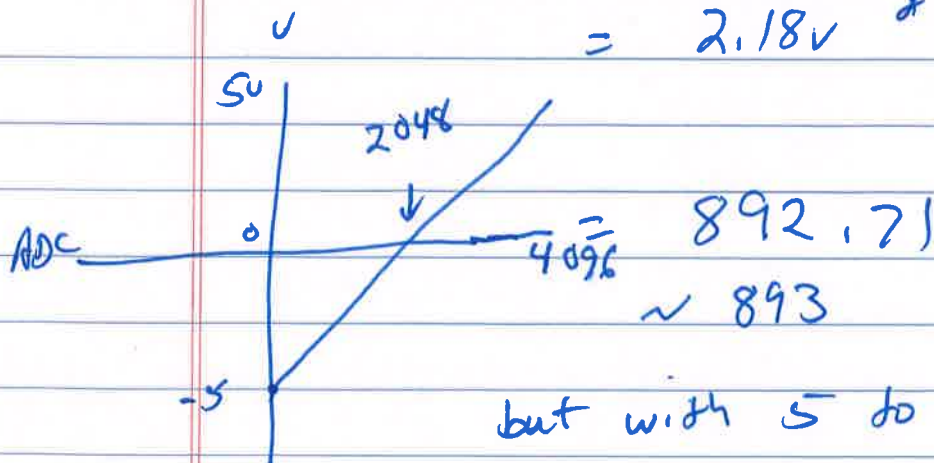 V
= 2.18v
5v
2048
ADC
0
4096
= 892.71
~ 893
-5
but with 5 to